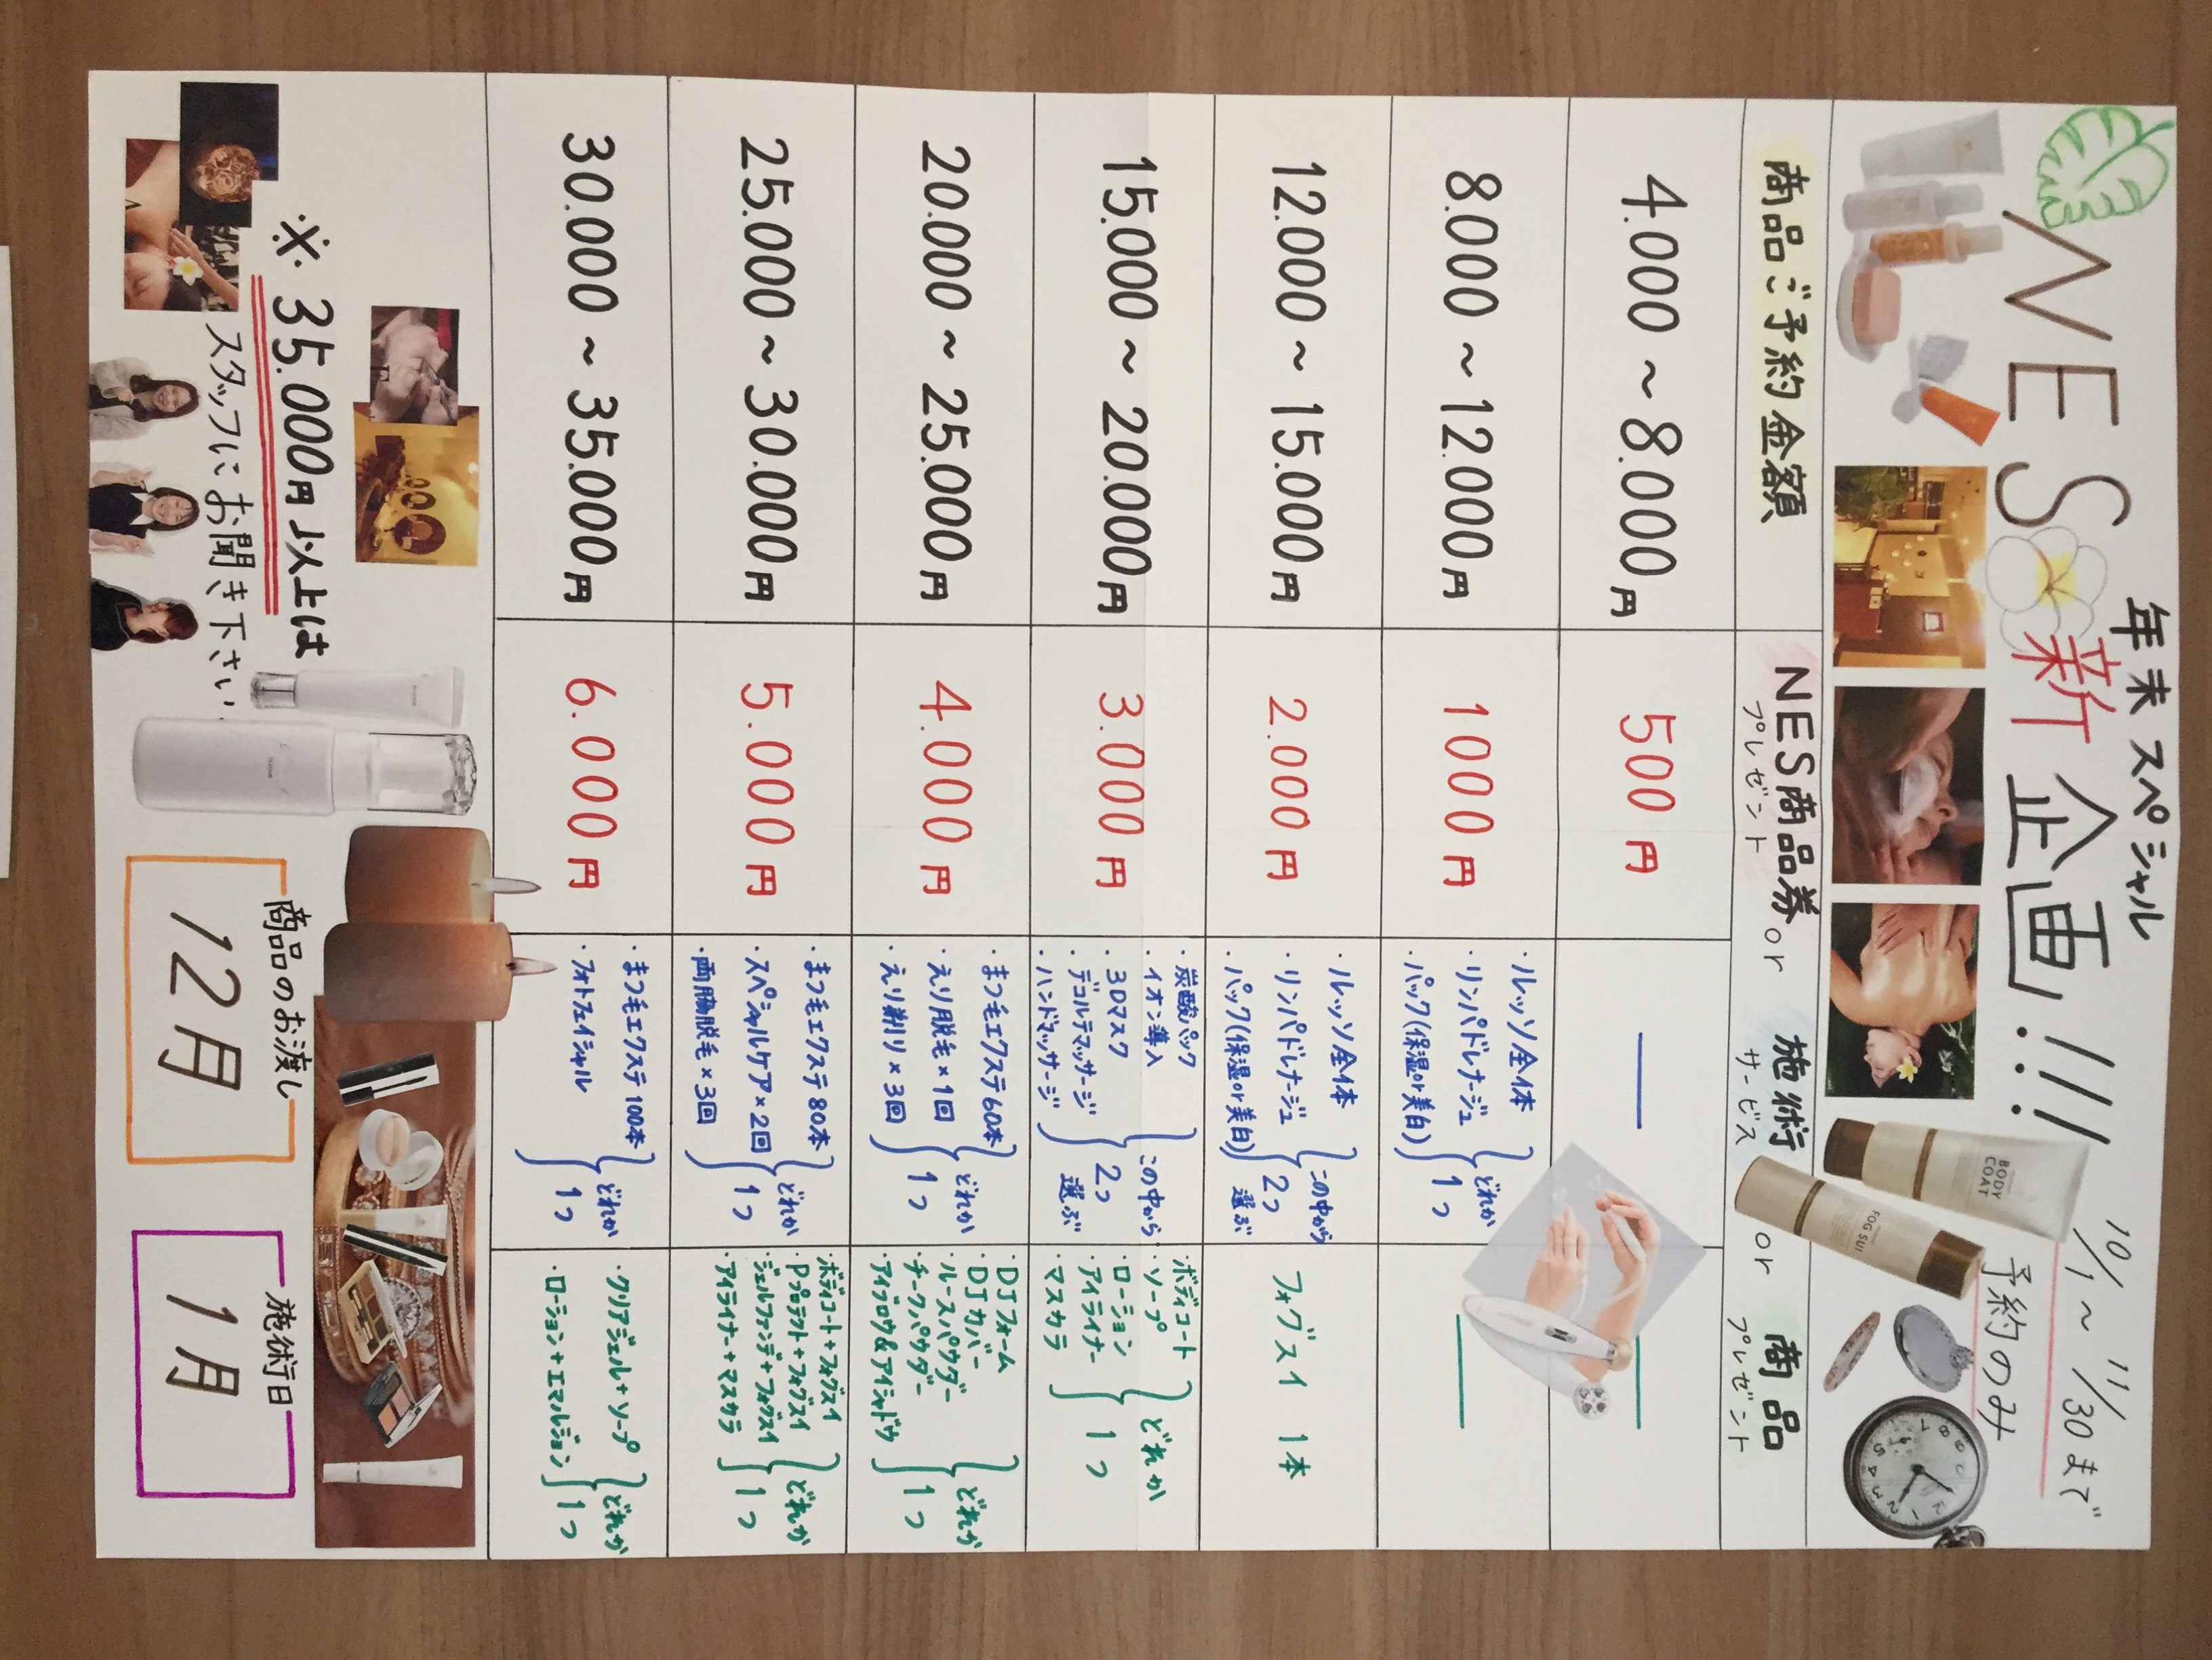 年末スペシャル
NES新企画!!!
10/1〜11/30まで
予約のみ
BODY
COAT
FOG SUI
商品ご予約金額
NES商品券
プレゼント
or
施術
サービス
or
商品
プレゼント
4.000〜8.000円
500円
―
―
8.000〜12.000円
1000円
・ルッソ全体
・リンパドレナージュ
・パック(保湿or美白)
どれか
1つ
―
12.000〜15.000円
2.000円
・ルッソ全体
・リンパドレナージュ
・パック(保湿or美白)
この中から
2つ
選ぶ
フォグスイ 1本
15.000〜20.000円
3.000円
・炭酸パック
・イオン導入
・3Dマスク
・デコルテマッサージ
・ハンドマッサージ
この中から
2つ
選ぶ
・ボディコート
・ソープ
・ローション
・アイライナー
・マスカラ
どれか
1つ
20.000〜25.000円
4.000円
・まつ毛エクステ60本
・えり脱毛×1回
・えり剃り×3回
どれか
1つ
・DJフォーム
・DJカバー
・ルースパウダー
・チークパウダー
・アイブロウ&アイシャドウ
どれか
1つ
25.000〜30.000円
5.000円
・まつ毛エクステ80本
・スペシャルケア×2回
・両脇脱毛×3回
どれか
1つ
・ボディコート+フォグスイ
・Pプロテクト+フォグスイ
・ジェルファンデ+フォグスイ
・アイライナー+マスカラ
どれか
1つ
30.000〜35.000円
6.000円
・まつ毛エクステ100本
・フォトフェイシャル
どれか
1つ
・クリアジェル+ソープ
・ローション+エマルジョン
どれか
1つ
※35.000円以上は
スタッフにお聞き下さい。
商品のお渡し
12月
施術日
1月